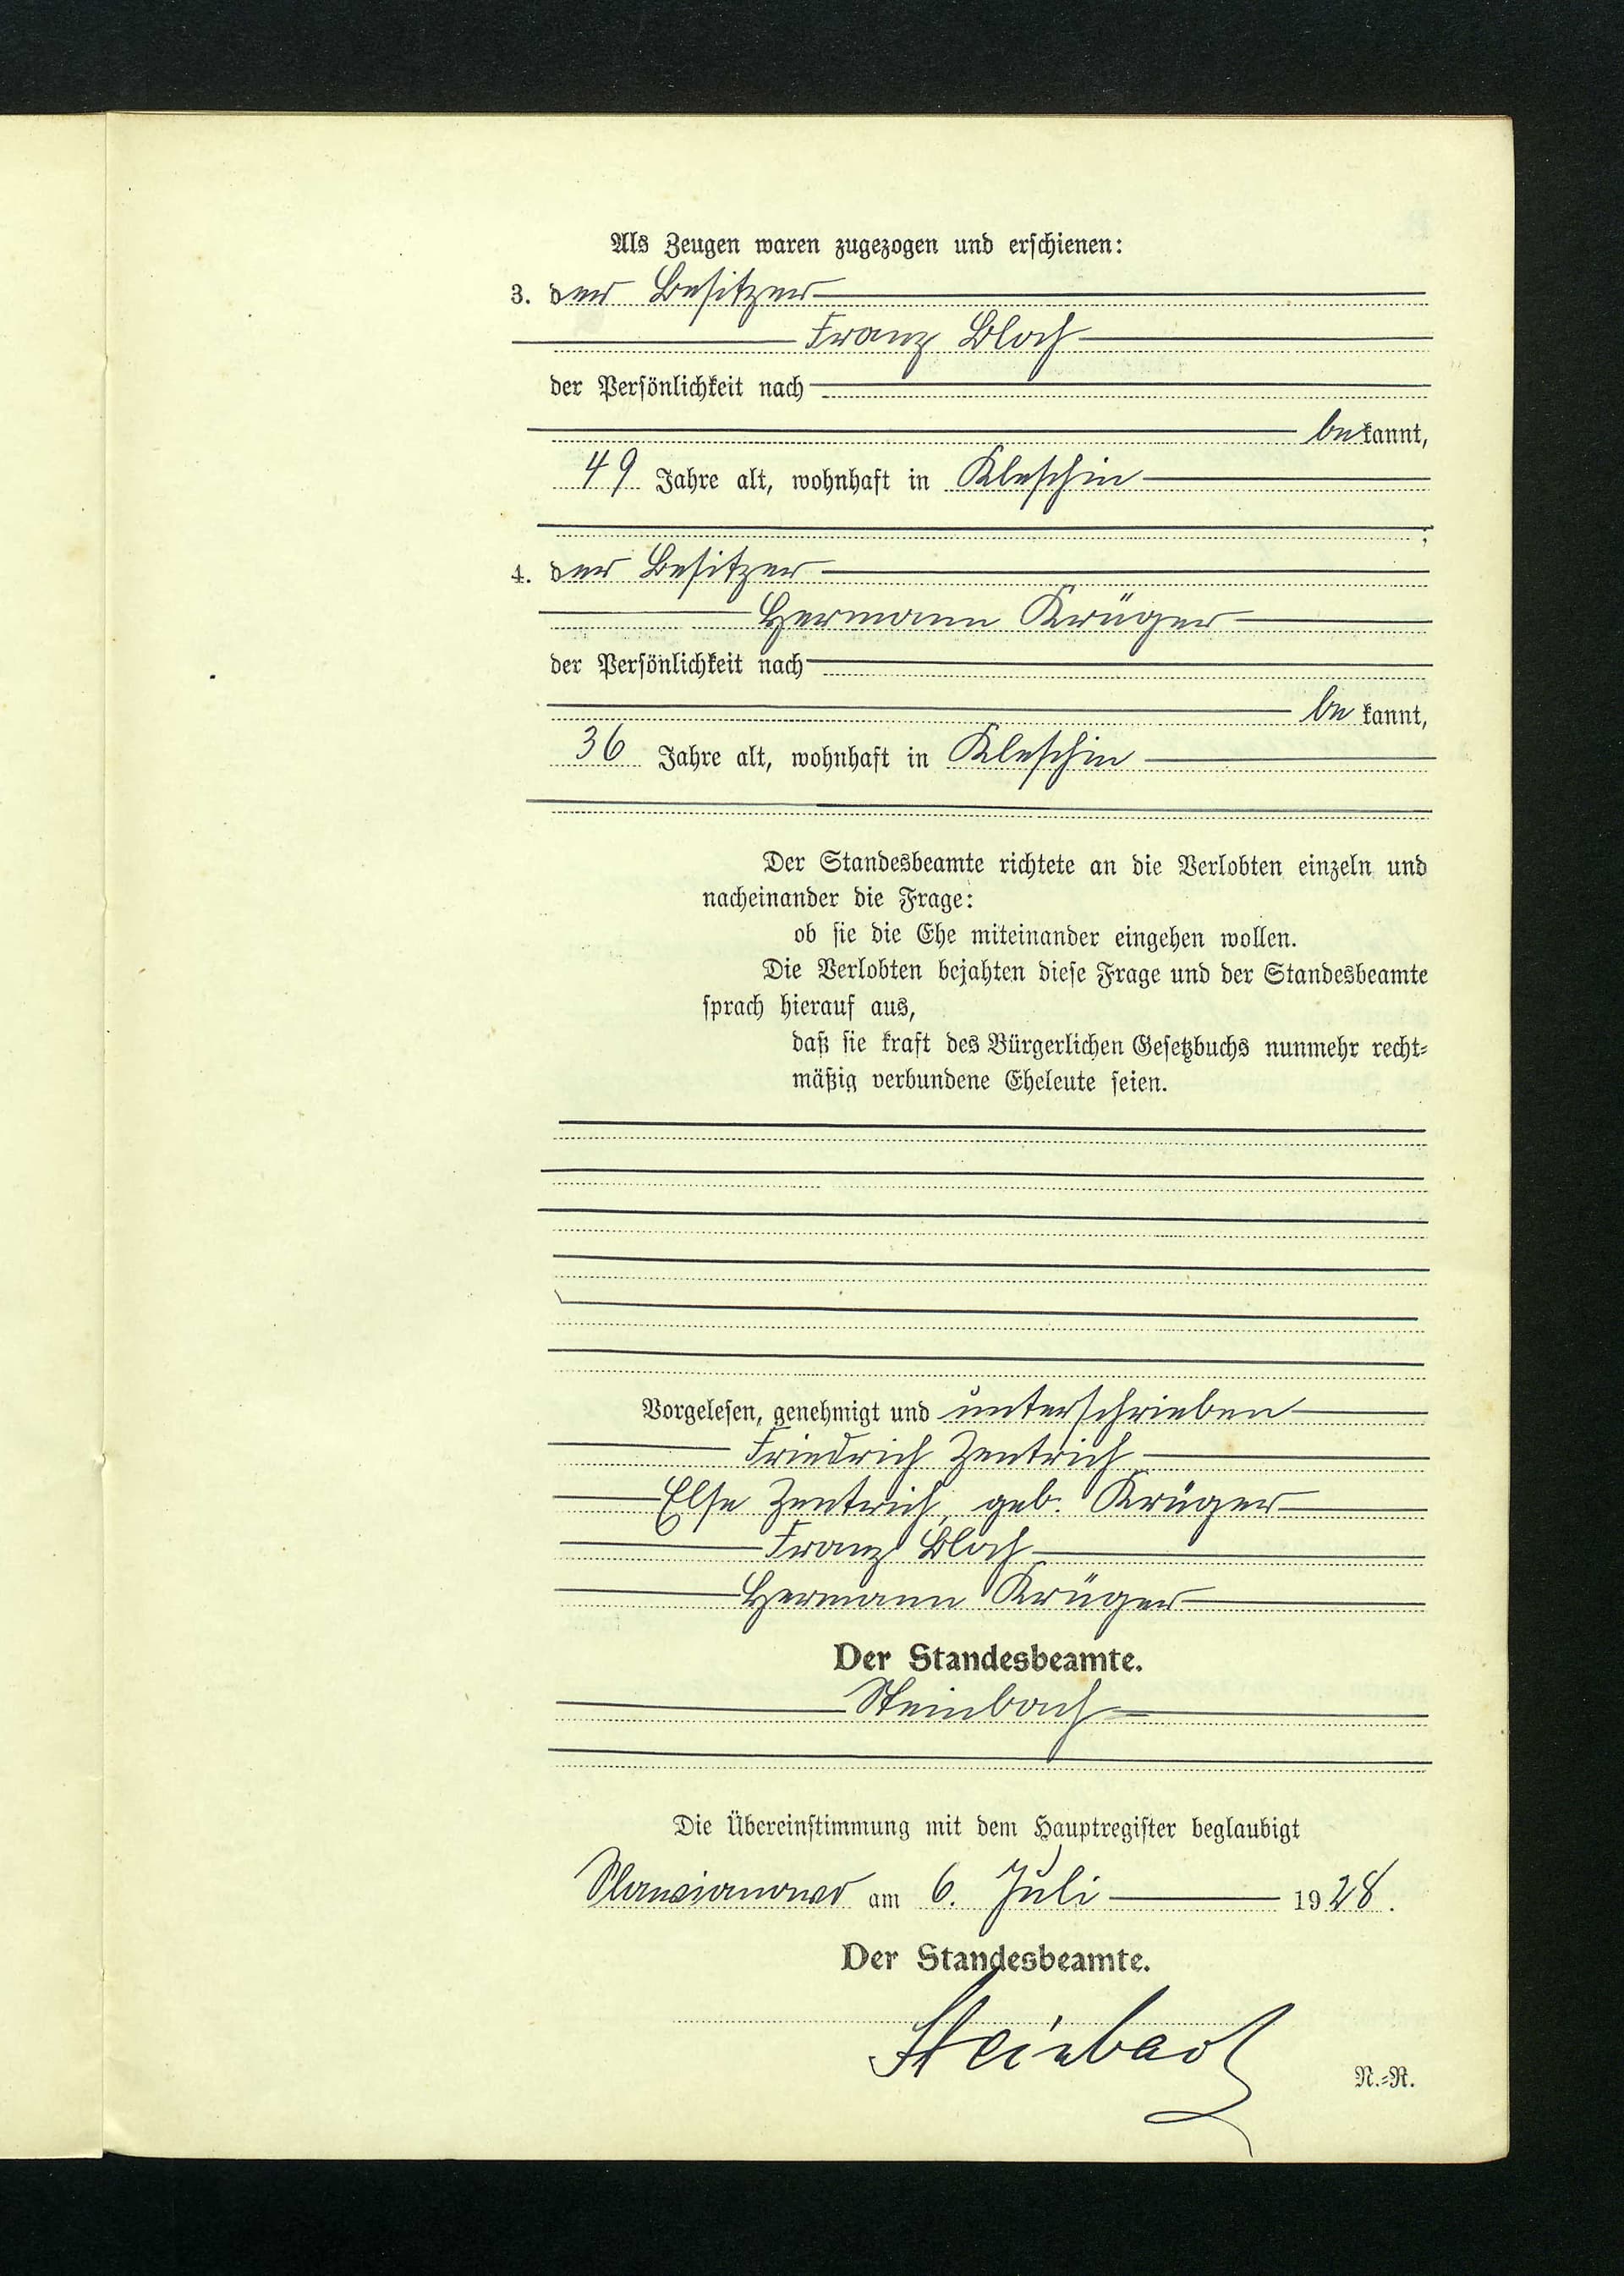 Als Zeugen waren zugezogen und erschienen:
3. der Besitzer
Franz Bloch
der Persönlichkeit nach
bekannt,
49 Jahre alt, wohnhaft in Kleschin
;
4. der Besitzer
Hermann Krüger
der Persönlichkeit nach
be kannt,
36 Jahre alt, wohnhaft in Kleschin
Der Standesbeamte richtete an die Verlobten einzeln und
nacheinander die Frage:
ob sie die Ehe miteinander eingehen wollen.
Die Verlobten bejahten diese Frage und der Standesbeamte
sprach hierauf aus,
daß sie kraft des Bürgerlichen Gesetzbuchs nunmehr recht-
mäßig verbundene Eheleute seien.
Vorgelesen, genehmigt und unterschrieben
Friedrich Zentrich
Else Zentrich, geb. Krüger
Franz Bloch
Hermann Krüger
Der Standesbeamte.
Steinbach
Die Übereinstimmung mit dem Hauptregister beglaubigt
Slawianowo am 6. Juli 1928.
Der Standesbeamte.
Steinbach
N.-R.